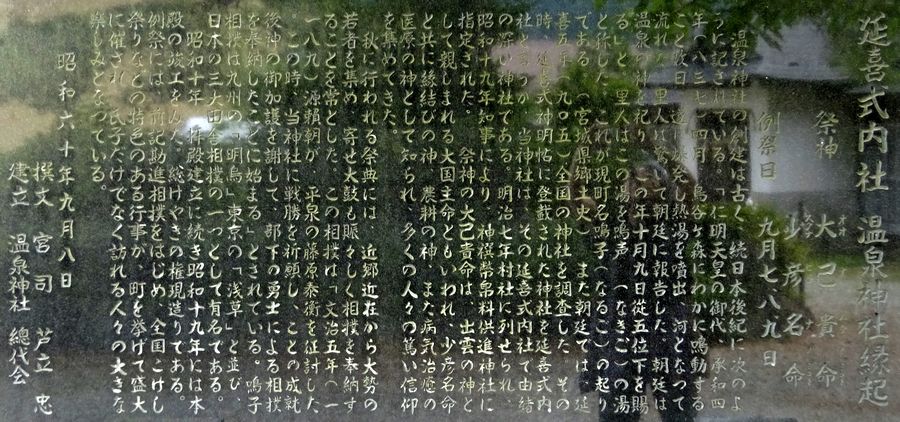 延喜式内社 温泉神社縁起
祭神 大己貴命
少彦名命
例祭日 九月七、八、九日
温泉神社の創建は古く、続日本後紀に、次のよ
うに記されている。「仁明天皇の御代、承和四
年(八三七)四月、鳥谷ケ森にわかに鳴動する
こと数日、遂に爆発し熱湯を噴出、河となって
流れ、里人は驚いて朝廷に報告した。朝廷は
温泉の神を祀り、この年十月九日従五位下を賜
る」と、里人はこの湯を鳴声(なきご)の湯
と称した。これが現町名鳴子(なるこ)の起り
である。(宮城県郷土史)また朝廷では、延
喜五年(九〇五)全国の神社を調査した。その
時、延喜式神明帖に登載された神社を延喜式内
社と言うが、当神社は、その延喜式内社で由緒
の深い神社である。明治七年村社に列せられ、
昭和十九年知事により、神饌幣帛料供進神社に
指定された。 祭神の大己貴命は、出雲の神と
して親しまれる大国主命ともいわれ、少彦名命
と共に縁結びの神、農耕の神、また病気治癒の
医療の神として知られ、多くの人々の篤い信仰
をあつめてきた。
秋に行われる祭典には、近郷近在から大勢の
若者を集め、寄せ太鼓も賑々しく相撲を奉納す
ることを常とした。この相撲は「文治五年(一
一八九)源頼朝が、平泉の藤原泰衡を征討した
この時、当神社に戦勝を祈願し、ことの成就
後、神の御加護を謝して、部下の勇士による相撲
を奉納したことに始まる」とされている。鳴子
相撲は九州の「明烏」東京の「浅草」と並び、
日本の三大田舎相撲の一つとして有名である。
昭和十年、拝殿建立に続き昭和十九年には本
殿の竣工をみた。総けやきの権現造りである。
例祭には、前記勧進相撲をはじめ、全国こけし
祭りなどの特色のある行事が、町を挙げて盛大
に催され、氏子だけでなく訪れる人々の大きな
楽しみとなっている。
昭和六十年九月八日
撰文 宮司 芦立 忠
建立 温泉神社 總代会